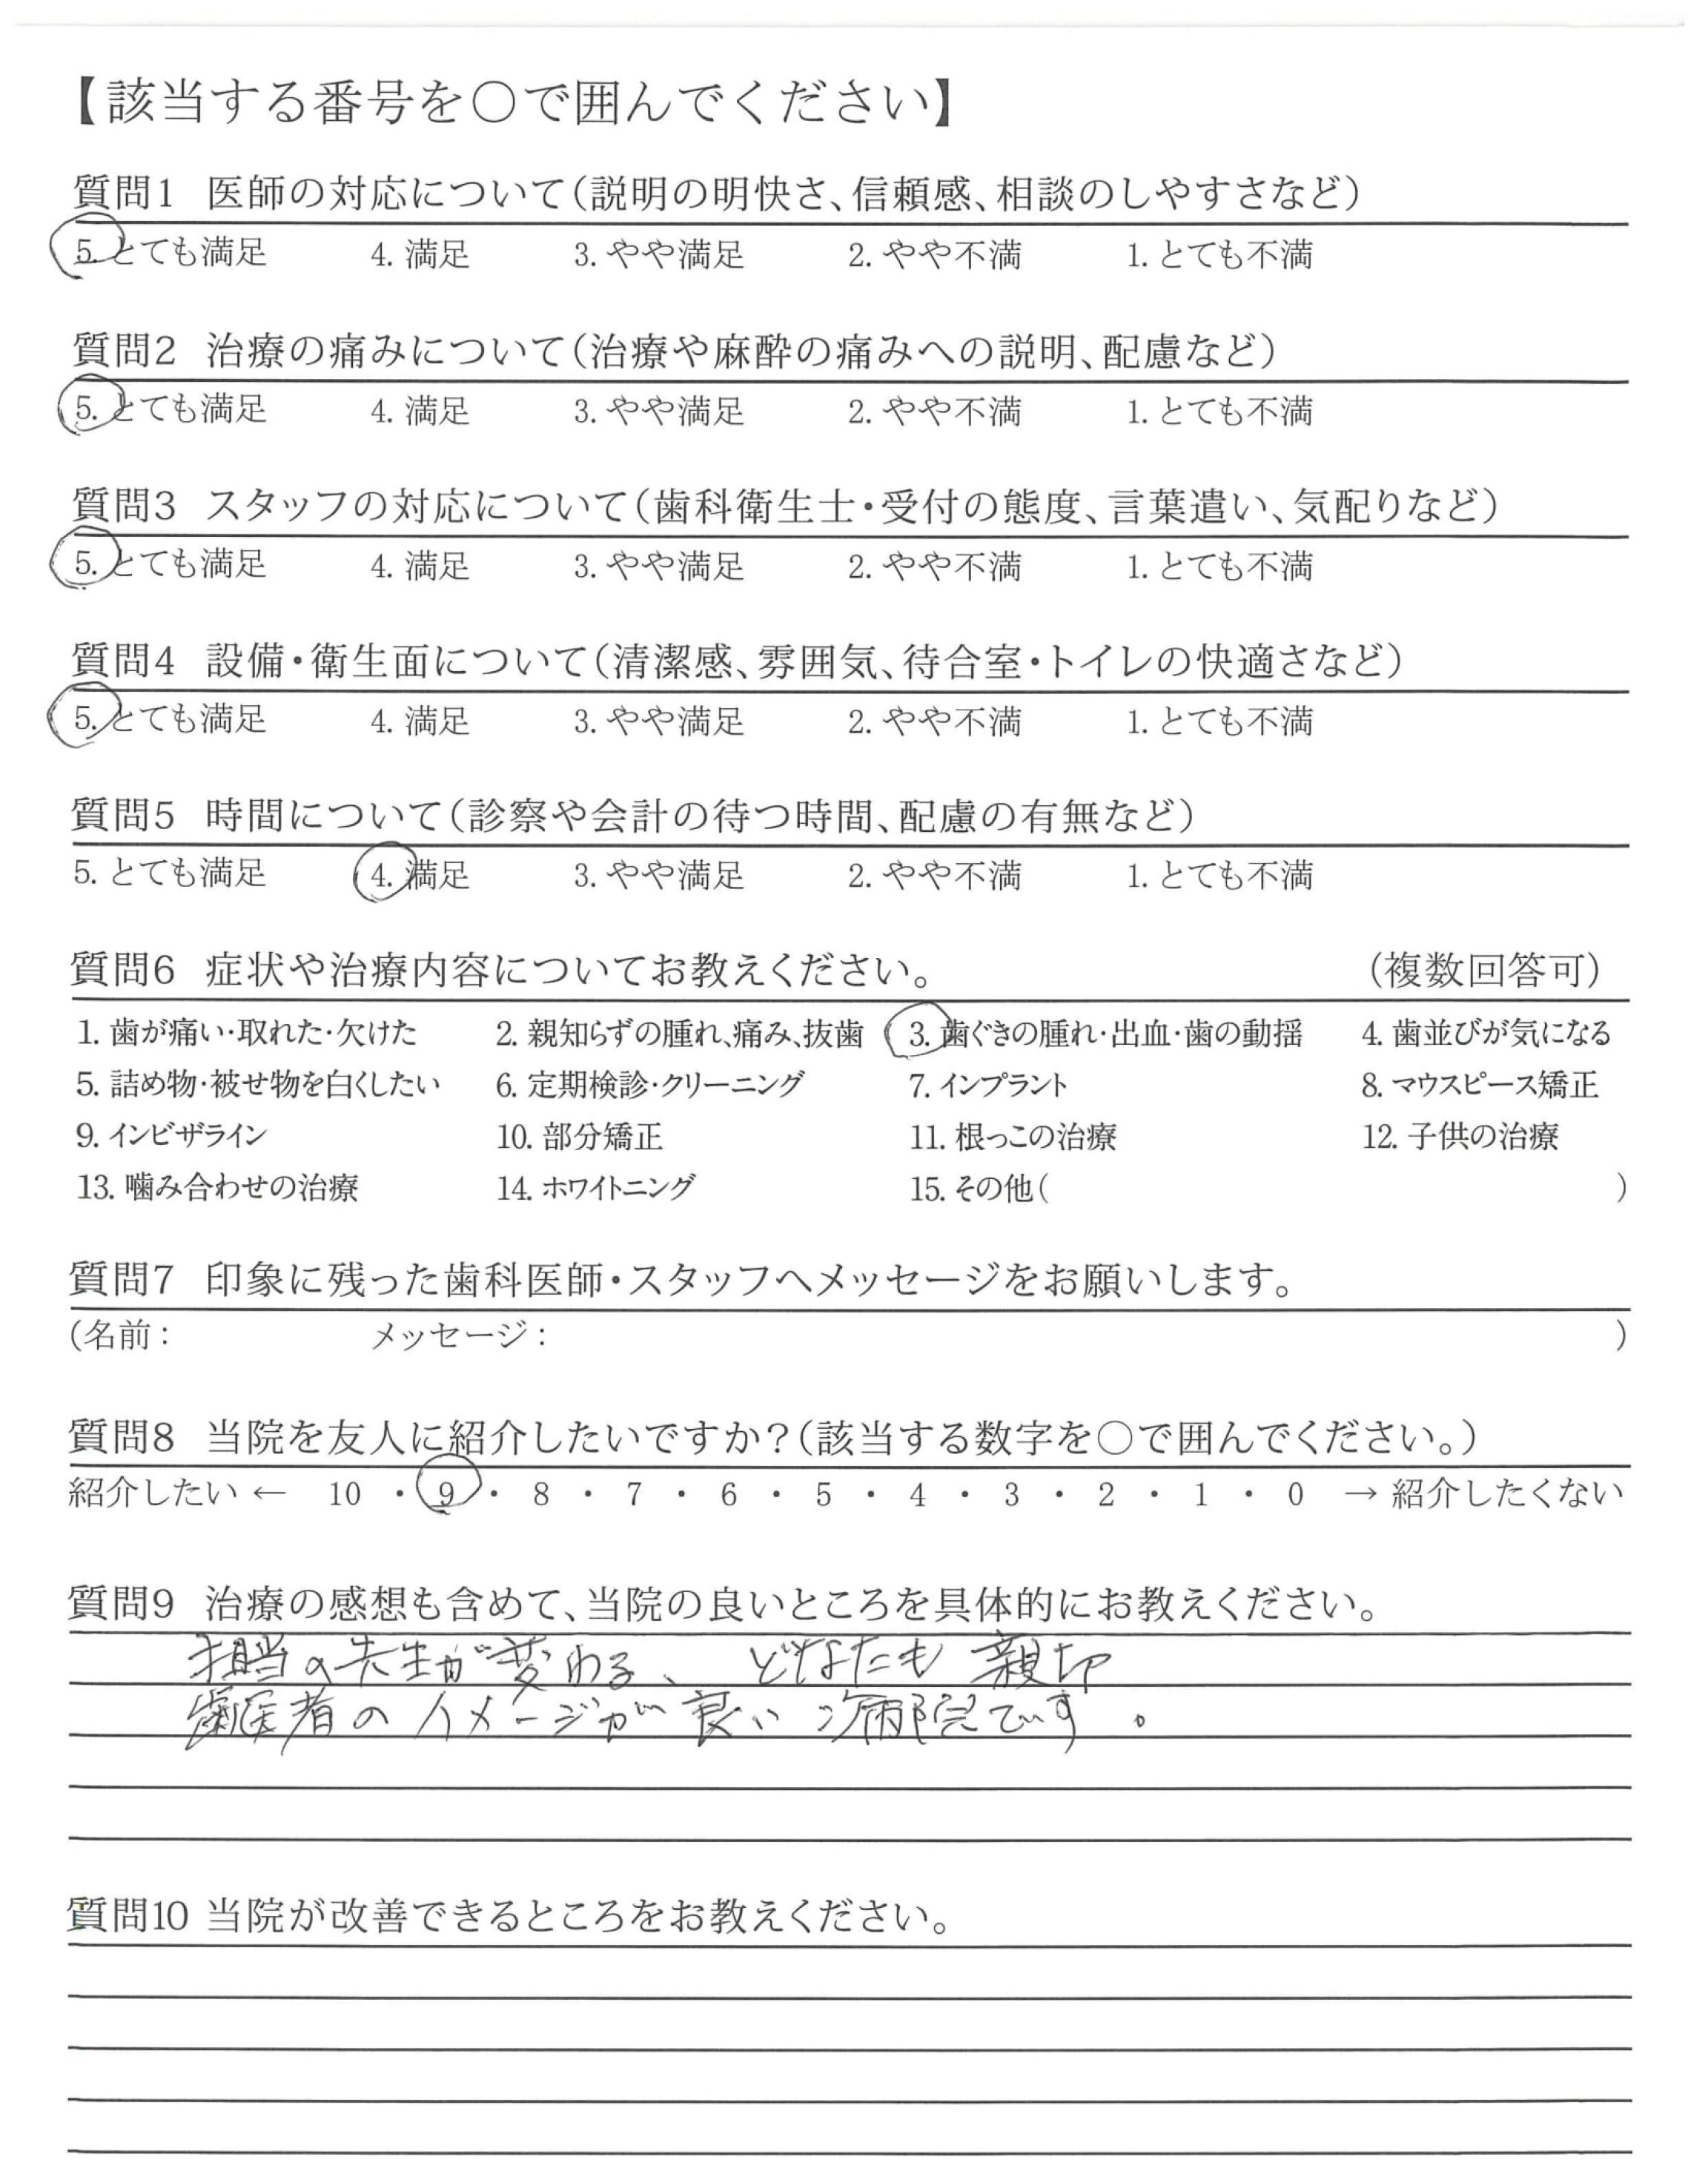 【該当する番号を○で囲んでください】
質問1 医師の対応について(説明の明快さ、信頼感、相談のしやすさなど)
5. とても満足 4. 満足 3. やや満足 2. やや不満 1. とても不満
質問2 治療の痛みについて(治療や麻酔の痛みへの説明、配慮など)
5. とても満足 4. 満足 3. やや満足 2. やや不満 1. とても不満
質問3 スタッフの対応について(歯科衛生士・受付の態度、言葉遣い、気配りなど)
5. とても満足 4. 満足 3. やや満足 2. やや不満 1. とても不満
質問4 設備・衛生面について(清潔感、雰囲気、待合室・トイレの快適さなど)
5. とても満足 4. 満足 3. やや満足 2. やや不満 1. とても不満
質問5 時間について(診察や会計の待つ時間、配慮の有無など)
5. とても満足 4. 満足 3. やや満足 2. やや不満 1. とても不満
質問6 症状や治療内容についてお教えください。 (複数回答可)
1. 歯が痛い・取れた・欠けた 2. 親知らずの腫れ、痛み、抜歯 3. 歯ぐきの腫れ・出血・歯の動揺 4. 歯並びが気になる
5. 詰め物・被せ物を白くしたい 6. 定期検診・クリーニング 7. インプラント 8. マウスピース矯正
9. インビザライン 10. 部分矯正 11. 根っこの治療 12. 子供の治療
13. 噛み合わせの治療 14. ホワイトニング 15. その他( )
質問7 印象に残った歯科医師・スタッフへメッセージをお願いします。
(名前: メッセージ: )
質問8 当院を友人に紹介したいですか?(該当する数字を○で囲んでください。)
紹介したい ← 10 ・ 9 ・ 8 ・ 7 ・ 6 ・ 5 ・ 4 ・ 3 ・ 2 ・ 1 ・ 0 → 紹介したくない
質問9 治療の感想も含めて、当院の良いところを具体的にお教えください。
担当の先生が変わる、どなたも 親切
歯医者のイメージが良い です。
質問10 当院が改善できるところをお教えください。